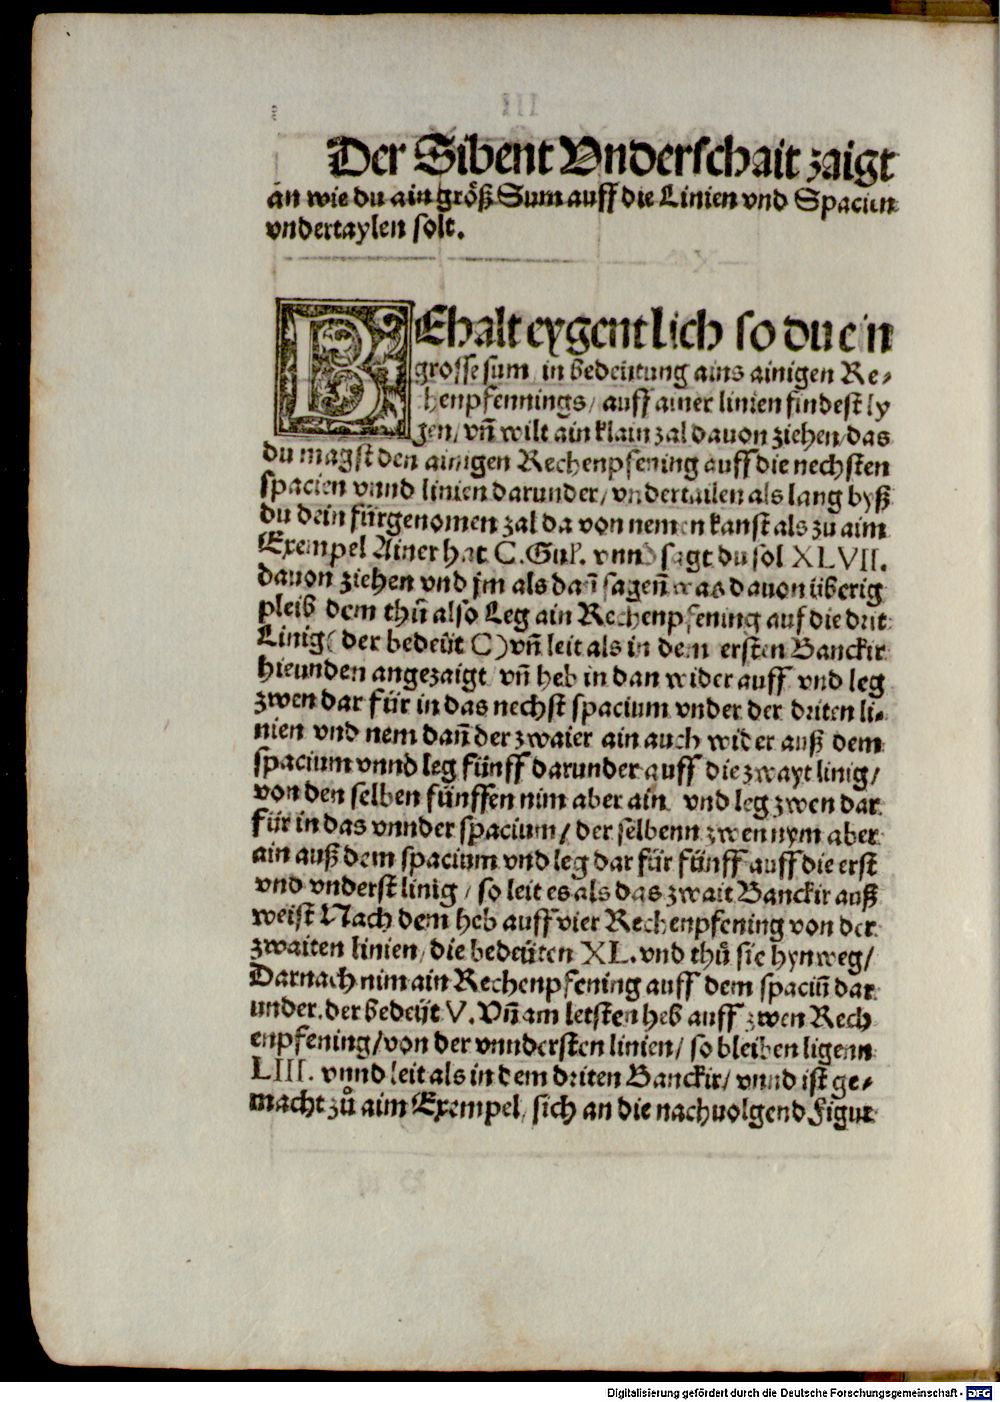 Der Sibent Vnderschait zaigt
an wie du ain größ Sum auff die Linien vnd Spacien
vndertaylen solt.
BEhalt eygentlich so du ein
grosse sum in bedeütung ains ainigen Re-
chenpfennings / auff ainer linien findest ly
gen / vñ wilt ain klain zal dauon ziehen / das
du magst den ainigen Rechenpfening auff die nechsten
spacien vnnd linien darunder / vndertailen als lang byß
du dein fürgenomen zal da von nemen kanst als zu aim
Exempel Ainer hat C. Gul. vnnd sagt du sol XLVII.
dauon ziehen vnd jm als dañ sageñ was dauon überig
pleib dem thů also Leg ain Rechenpfening auf die drit
Linig ( der bedeüt C ) vñ leit als in dem ersten Banckir
hieunden angezaigt / vñ heb in dan wider auff vnd leg
zwen dar für in das nechst spacium vnder der driten li-
nien vnd nem dañ der zwaier ain auch wider auß dem
spacium vnnd leg fünff darunder auff die zwayt linig /
von den selben fünffen nim aber ain vnd leg zwen dar
für in das vnnder spacium / der selbenn zwen nym aber
ain auß dem spacium vnd leg dar für fünff auff die erst
vnd vnderst linig / so leit es als das zwait Banckir auß
weist Nach dem heb auff vier Rechenpfening von der
zwaiten linien / die bedeüten XL. vnd thů sie hynweg /
Darnach nim ain Rechenpfening auff dem spaciũ dar
under. der bedeüt V. Vñ am letsten heb auff zwen Rech
enpfening / von der vnndersten linien / so bleiben ligenn
LIII. vnnd leit als in dem driten Banckir / vnnd ist ge-
macht zů aim Exempel / sich an die nachuolgend Figur
Digitalisierung gefördert durch die Deutsche Forschungsgemeinschaft - DFG